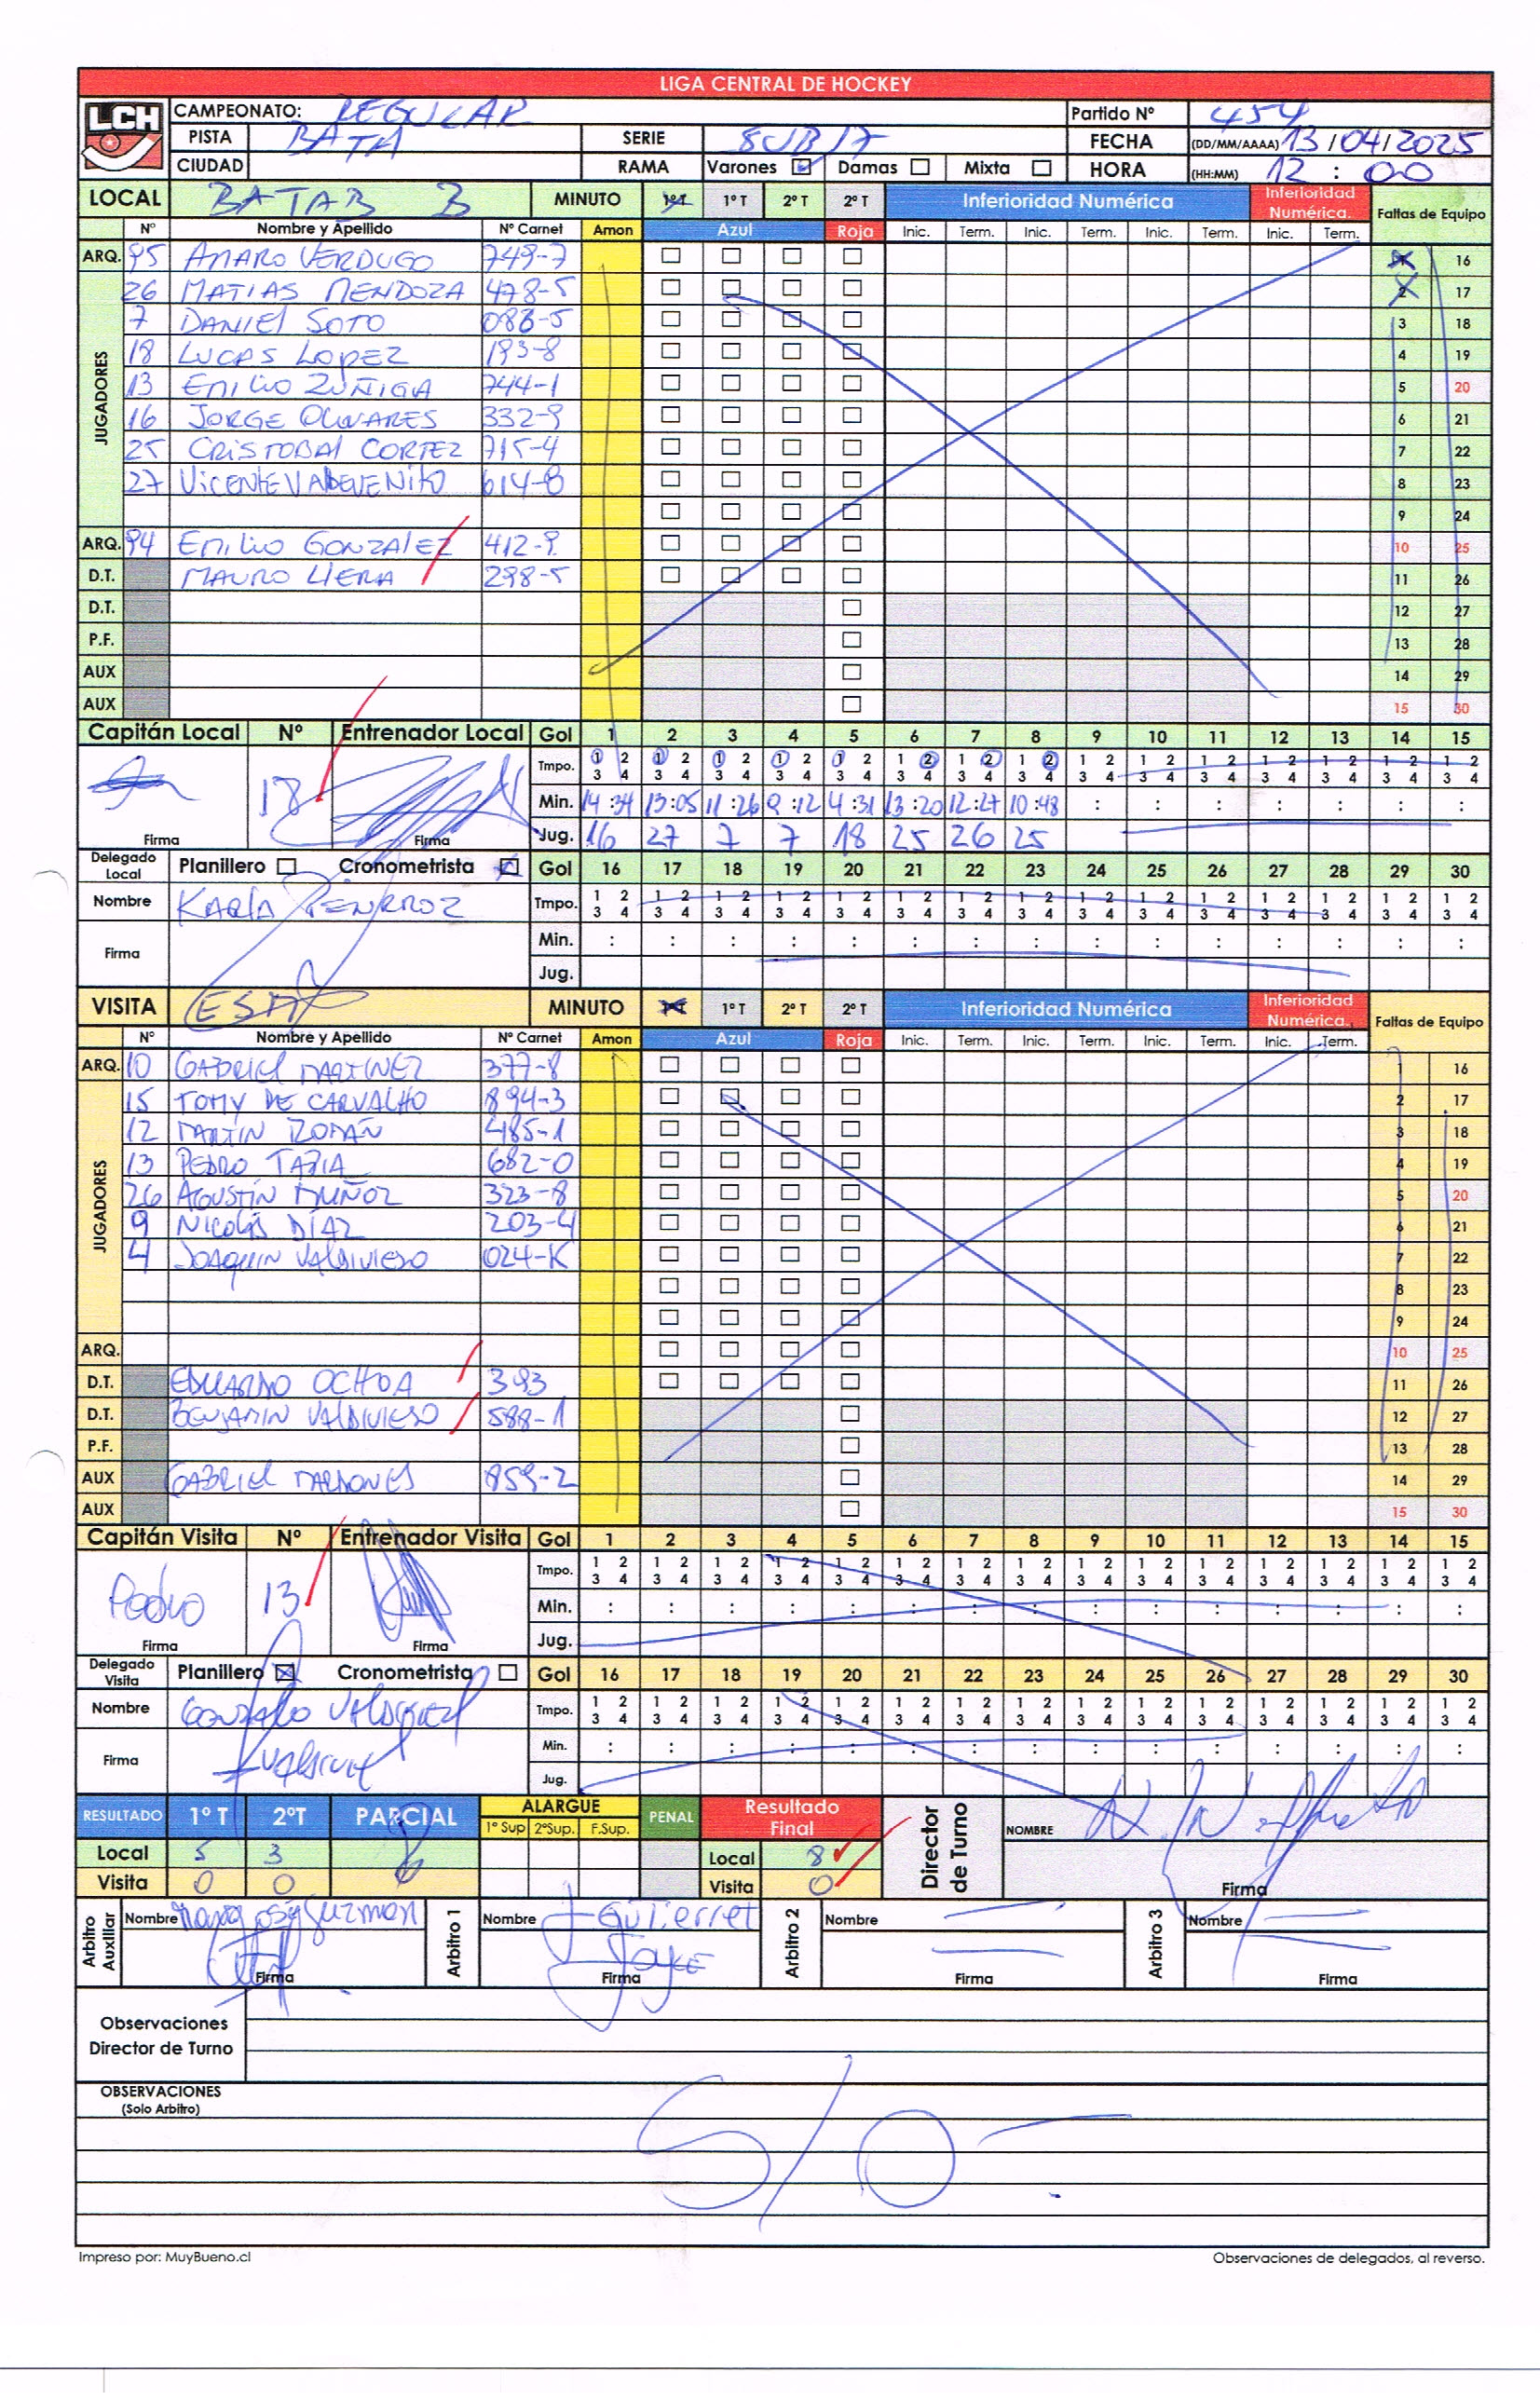 LIGA CENTRAL DE HOCKEY
LCH
CAMPEONATO: REGULAR Partido Nº 454
PISTA BATA SERIE SUB 17 FECHA (DD/MM/AAAA) 13/04/2025
CIUDAD RAMA Varones Damas Mixta HORA (HH:MM) 12 : 00
LOCAL BATAB B MINUTO 1º T 1º T 2º T 2º T Inferioridad Numérica Inferioridad Numérica. Faltas de Equipo
Nº Nombre y Apellido Nº Carnet Amon Azul Roja Inic. Term. Inic. Term. Inic. Term. Inic. Term.
ARQ. 95 AMARO VERDUGO 749-7 1 16
JUGADORES
26 MATIAS MENDOZA 478-5 2 17
7 DANIEL SOTO 086-5 3 18
18 LUCAS LOPEZ 193-8 4 19
13 EMILIO ZUÑIGA 744-1 5 20
16 JORGE OLIVARES 332-9 6 21
25 CRISTOBAL CORTEZ 715-4 7 22
27 VICENTE VALDEVENITO 614-8 8 23
9 24
ARQ. 94 EMILIO GONZALEZ 412-9 10 25
D.T. MAURO LIERA 298-5 11 26
D.T. 12 27
P.F. 13 28
AUX 14 29
AUX 15 30
Capitán Local Nº Entrenador Local Gol 1 2 3 4 5 6 7 8 9 10 11 12 13 14 15
Tmpo. 1 2 1 2 1 2 1 2 1 2 1 2 1 2 1 2 1 2 1 2 1 2 1 2 1 2 1 2 1 2
3 4 3 4 3 4 3 4 3 4 3 4 3 4 3 4 3 4 3 4 3 4 3 4 3 4 3 4 3 4
18 Min. 14:34 13:05 11:26 9:12 4:31 13:20 12:27 10:48 : : : : : : :
Firma Firma Jug. 16 27 7 7 18 25 26 25
Delegado Local Planillero Cronometrista Gol 16 17 18 19 20 21 22 23 24 25 26 27 28 29 30
Nombre KARLA Tmpo. 1 2 1 2 1 2 1 2 1 2 1 2 1 2 1 2 1 2 1 2 1 2 1 2 1 2 1 2 1 2
3 4 3 4 3 4 3 4 3 4 3 4 3 4 3 4 3 4 3 4 3 4 3 4 3 4 3 4 3 4
Firma Min. : : : : : : : : : : : : : : :
Jug.
VISITA ESA MINUTO 1º T 1º T 2º T 2º T Inferioridad Numérica Inferioridad Numérica. Faltas de Equipo
Nº Nombre y Apellido Nº Carnet Amon Azul Roja Inic. Term. Inic. Term. Inic. Term. Inic. Term.
ARQ. 10 GABRIEL MARTINEZ 377-8 1 16
JUGADORES
15 TOMY DE CARVALHO 894-3 2 17
12 MARTÍN ROMÁN 485-1 3 18
13 PEDRO TAPIA 682-0 4 19
26 AGUSTÍN MUÑOZ 323-8 5 20
9 NICOLÁS DÍAZ 203-4 6 21
4 JOAQUIN VALDIVIESO 024-K 7 22
8 23
9 24
ARQ. 10 25
D.T. EDUARDO OCHOA 393 11 26
D.T. BENJAMIN VALDIVIESO 588-1 12 27
P.F. 13 28
AUX GABRIEL MARDONES 859-2 14 29
AUX 15 30
Capitán Visita Nº Entrenador Visita Gol 1 2 3 4 5 6 7 8 9 10 11 12 13 14 15
Tmpo. 1 2 1 2 1 2 1 2 1 2 1 2 1 2 1 2 1 2 1 2 1 2 1 2 1 2 1 2 1 2
3 4 3 4 3 4 3 4 3 4 3 4 3 4 3 4 3 4 3 4 3 4 3 4 3 4 3 4 3 4
Pedro 13 Min. : : : : : : : : : : : : : : :
Firma Firma Jug.
Delegado Visita Planillero Cronometrista Gol 16 17 18 19 20 21 22 23 24 25 26 27 28 29 30
Nombre GONZALO Tmpo. 1 2 1 2 1 2 1 2 1 2 1 2 1 2 1 2 1 2 1 2 1 2 1 2 1 2 1 2 1 2
3 4 3 4 3 4 3 4 3 4 3 4 3 4 3 4 3 4 3 4 3 4 3 4 3 4 3 4 3 4
Firma Min. : : : : : : : : : : : : : : :
Jug.
RESULTADO 1º T 2ºT PARCIAL ALARGUE PENAL Resultado Final Director de Turno NOMBRE
1º Sup 2ºSup. F.Sup.
Local 5 3 Local 8
Visita 0 0 Visita 0 Firma
Arbitro Auxiliar Nombre Guzman Arbitro 1 Nombre J Gutierret Arbitro 2 Nombre Arbitro 3 Nombre
Firma Firma Joyce Firma Firma
Observaciones
Director de Turno
OBSERVACIONES
(Solo Arbitro)
S/O
Impreso por: MuyBueno.cl Observaciones de delegados, al reverso.